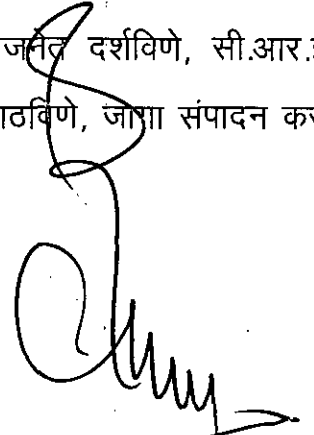 जनेत दर्शविणे, सी.आर.
ठविणे, जागा संपादन